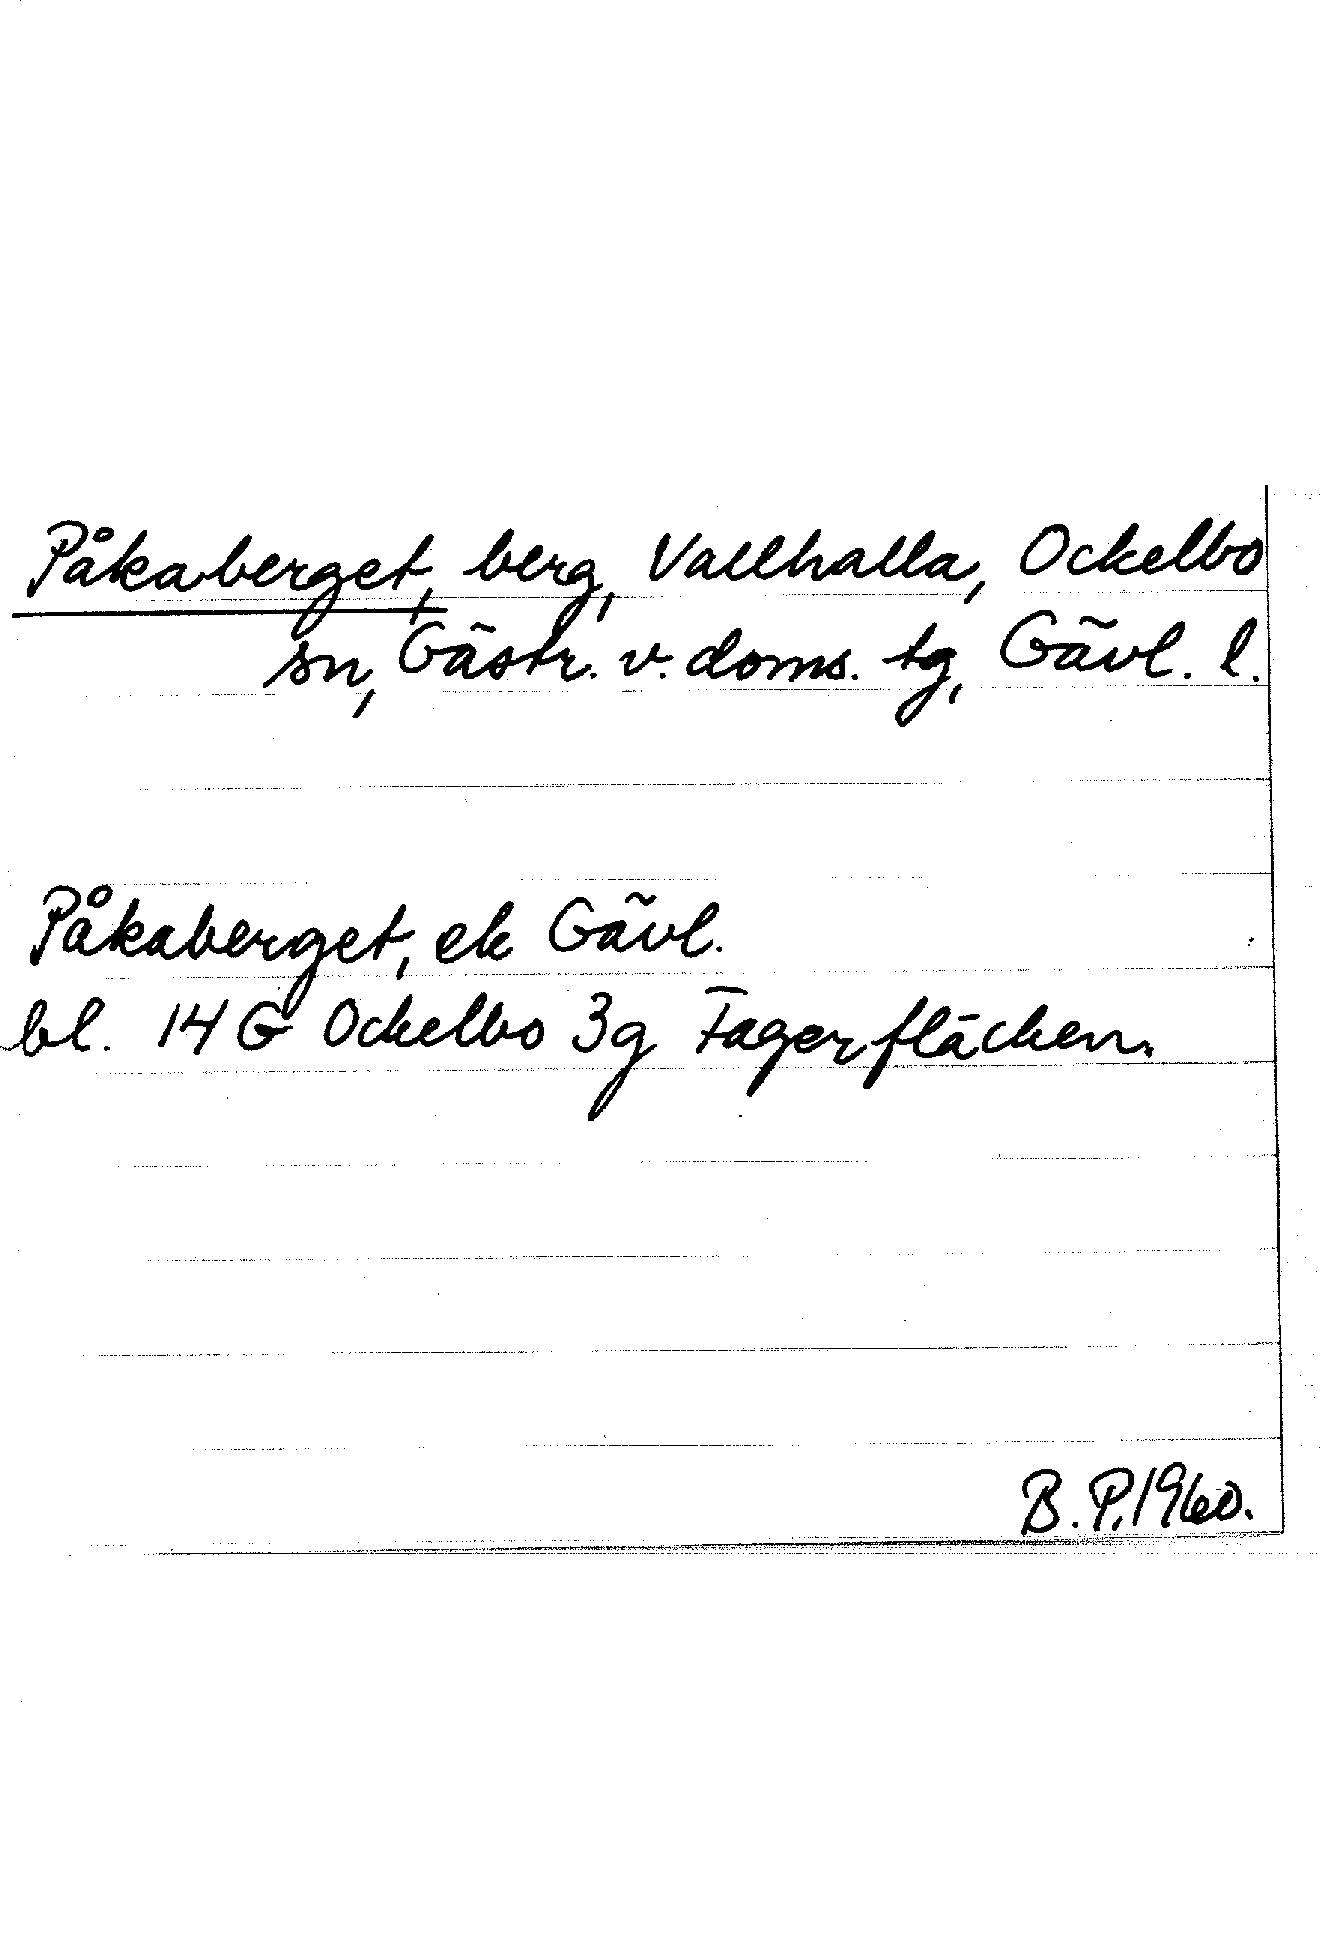 Påkaberget, berg, Vallhalla, Ockelbo
sn, Gästr. v. doms. tg, Gävl. l.
Påkaberget, ek Gävl.
bl. 14 G Ockelbo 3g Fagerfläcken.
B. P. 1960.